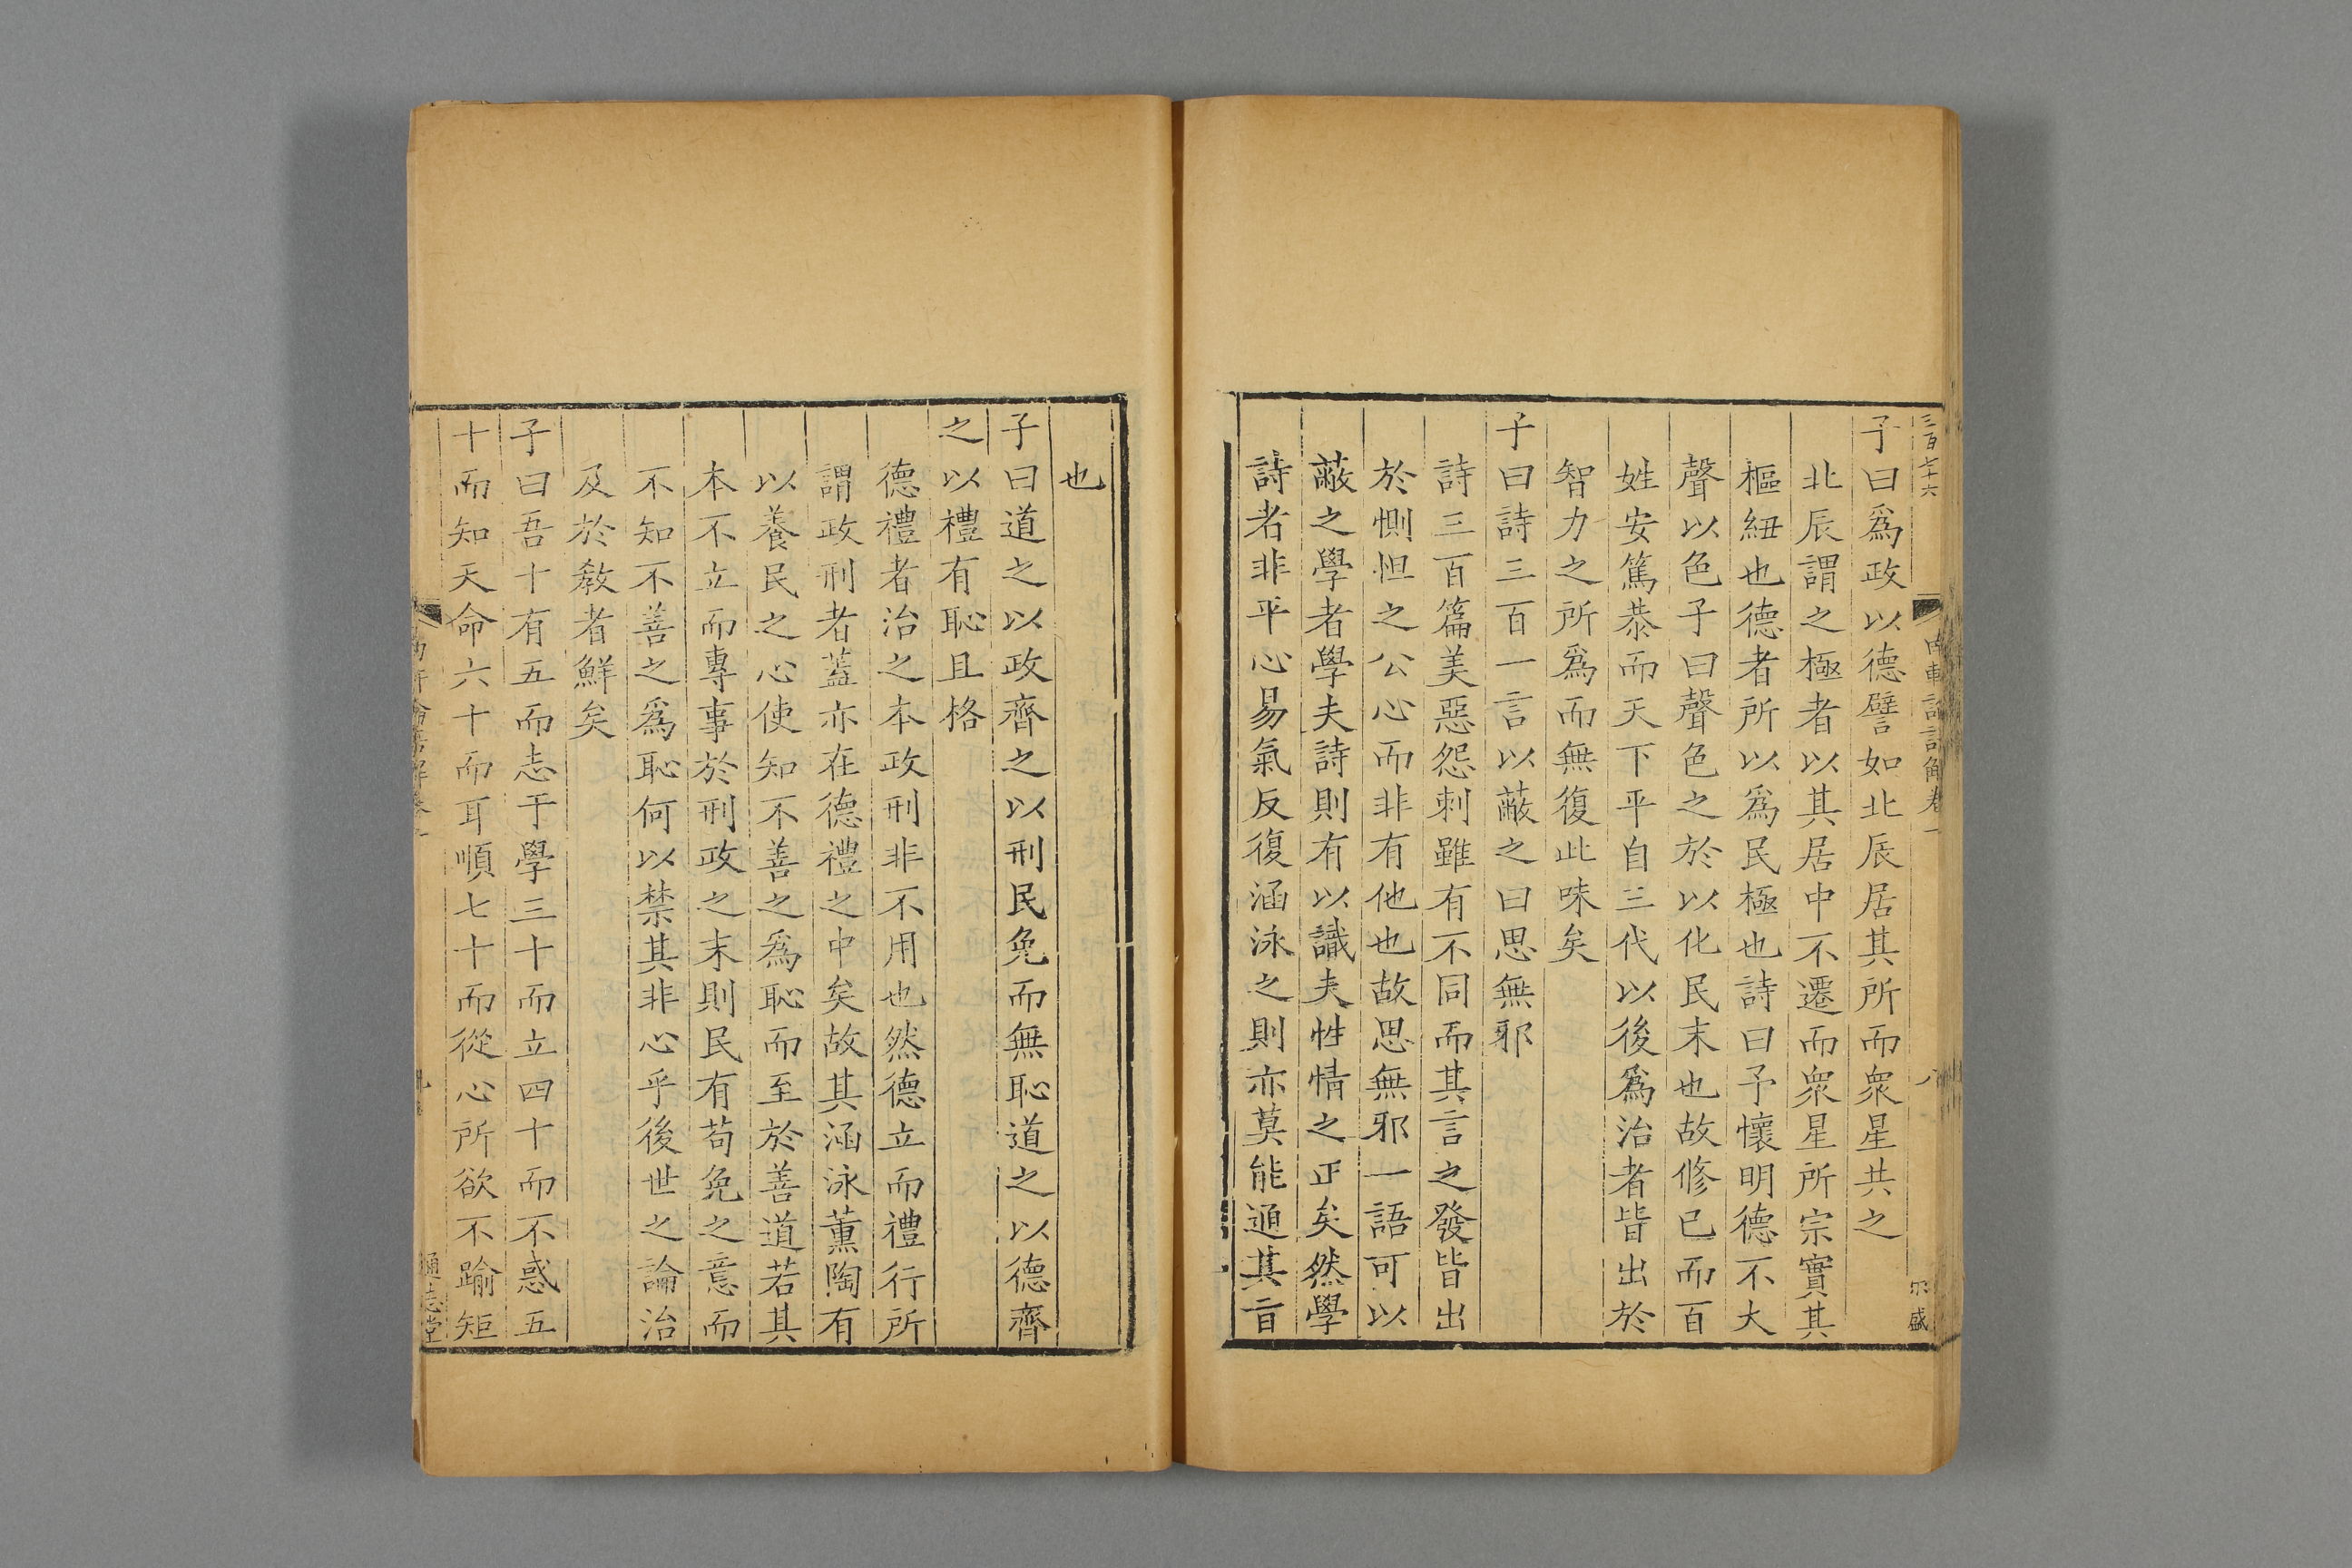 三百七十六
八
子曰爲政以德譬如北辰居其所而衆星共之
北辰謂之極者以其居中不遷而衆星所宗實其
樞紐也德者所以爲民極也詩曰予懷明德不大
聲以色子曰聲色之於以化民末也故修已而百
姓安篤恭而天下平自三代以後爲治者皆出於
智力之所爲而無復此味矣
子曰詩三百一言以蔽之曰思無邪
詩三百篇美惡怨刺雖有不同而其言之發皆出
於惻怛之公心而非有他也故思無邪一語可以
蔽之學者學夫詩則有以識夫性情之正矣然學
詩者非平心易氣反復涵泳之則亦莫能通其旨
也
子曰道之以政齊之以刑民免而無恥道之以德齊
之以禮有恥且格
德禮者治之本政刑非不用也然德立而禮行所
謂政刑者蓋亦在德禮之中矣故其涵泳薰陶有
以養民之心使知不善之爲恥而至於善道若其
本不立而專事於刑政之末則民有苟免之意而
不知不善之爲恥何以禁其非心乎後世之論治
及於敎者鮮矣
子曰吾十有五而志于學三十而立四十而不惑五
十而知天命六十而耳順七十而從心所欲不踰矩
通志堂